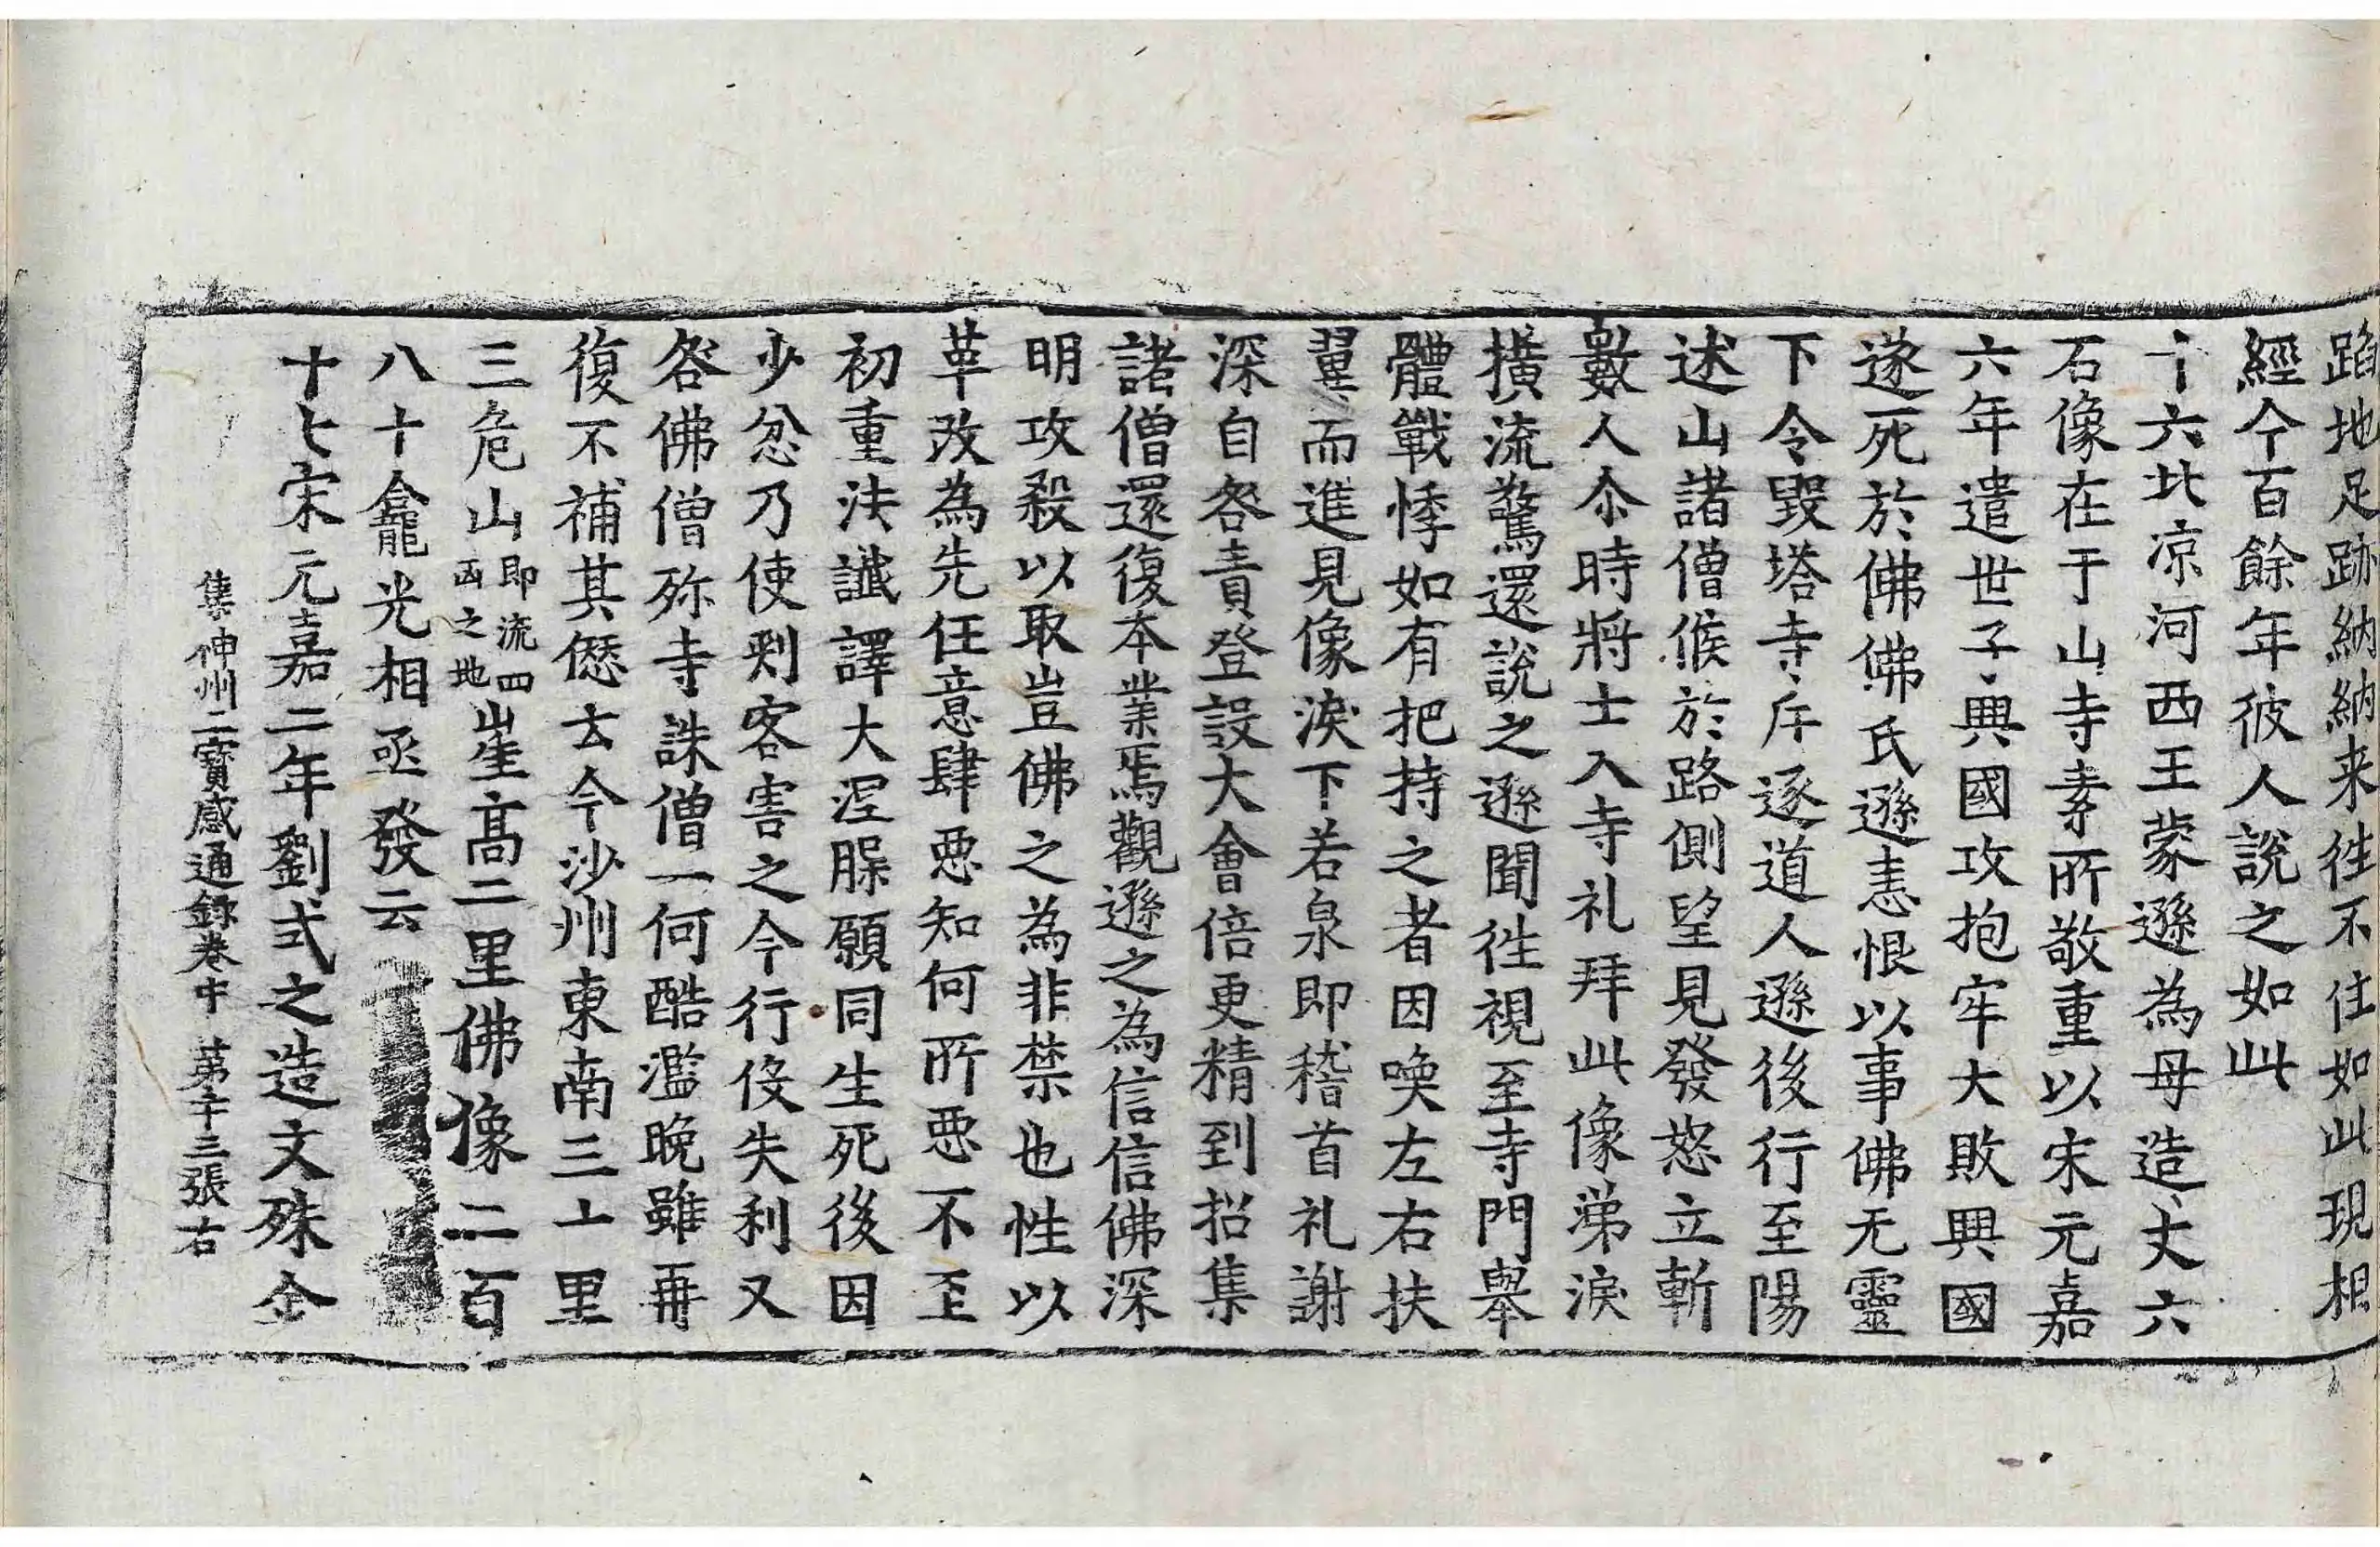 蹈地足跡納納来徃不住如此現相
經今百餘年彼人說之如此
十六北凉河西王蒙遜為母造丈六
石像在于山寺素所敬重以宋元嘉
六年遣世子興國攻抱罕大敗興國
遂死於佛佛氏遜恚恨以事佛无靈
下令毀塔寺斥逐道人遜後行至陽
述山諸僧候於路側望見發怒立斬
數人尒時將士入寺礼拜此像涕淚
橫流驚還說之遜聞徃視至寺門舉
體戰悸如有把持之者因喚左右扶
翼而進見像淚下若泉即稽首礼謝
深自咎責登設大會倍更精到招集
諸僧還復本業焉觀遜之為信信佛深
明攻殺以取豈佛之為非禁也性以
革改為先任意肆惡知何所惡不至
初重法讖譯大涅脲願同生死後因
少忿乃使刺客害之今行役失利又
咎佛僧殄寺誅僧一何酷濫晚雖再
復不補其僽去今沙州東南三十里
三危山即流四凶之地崖高二里佛像二百
八十龕光相亟發云
十七宋元嘉二年劉式之造文殊金
集神州三寶感通錄卷中 第十三張右